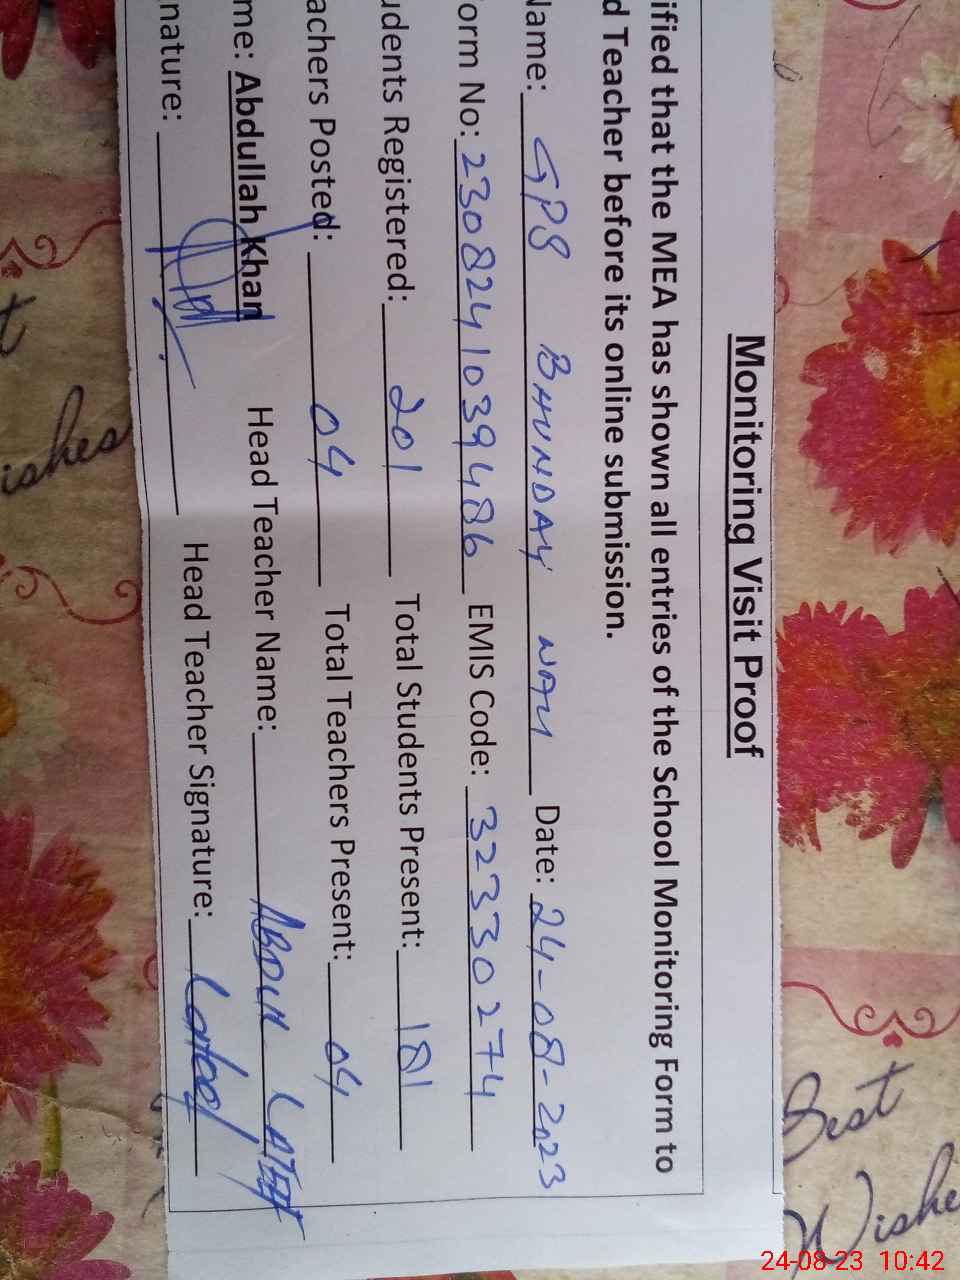 Monitoring Visit Proof
ified that the MEA has shown all entries of the School Monitoring Form to
d Teacher before its online submission.
Name: GPS BHUNDAY NAU Date: 24-08-2023
orm No: 230824 1039486 EMIS Code: 32330274
udents Registered: 201 Total Students Present: 181
achers Posted: 04 Total Teachers Present: 04
me: Abdullah Khan Head Teacher Name: ABDUL LATEEF
nature: Head Teacher Signature: Lateef
ishes
Best
Wishe
24-08-23 10:42